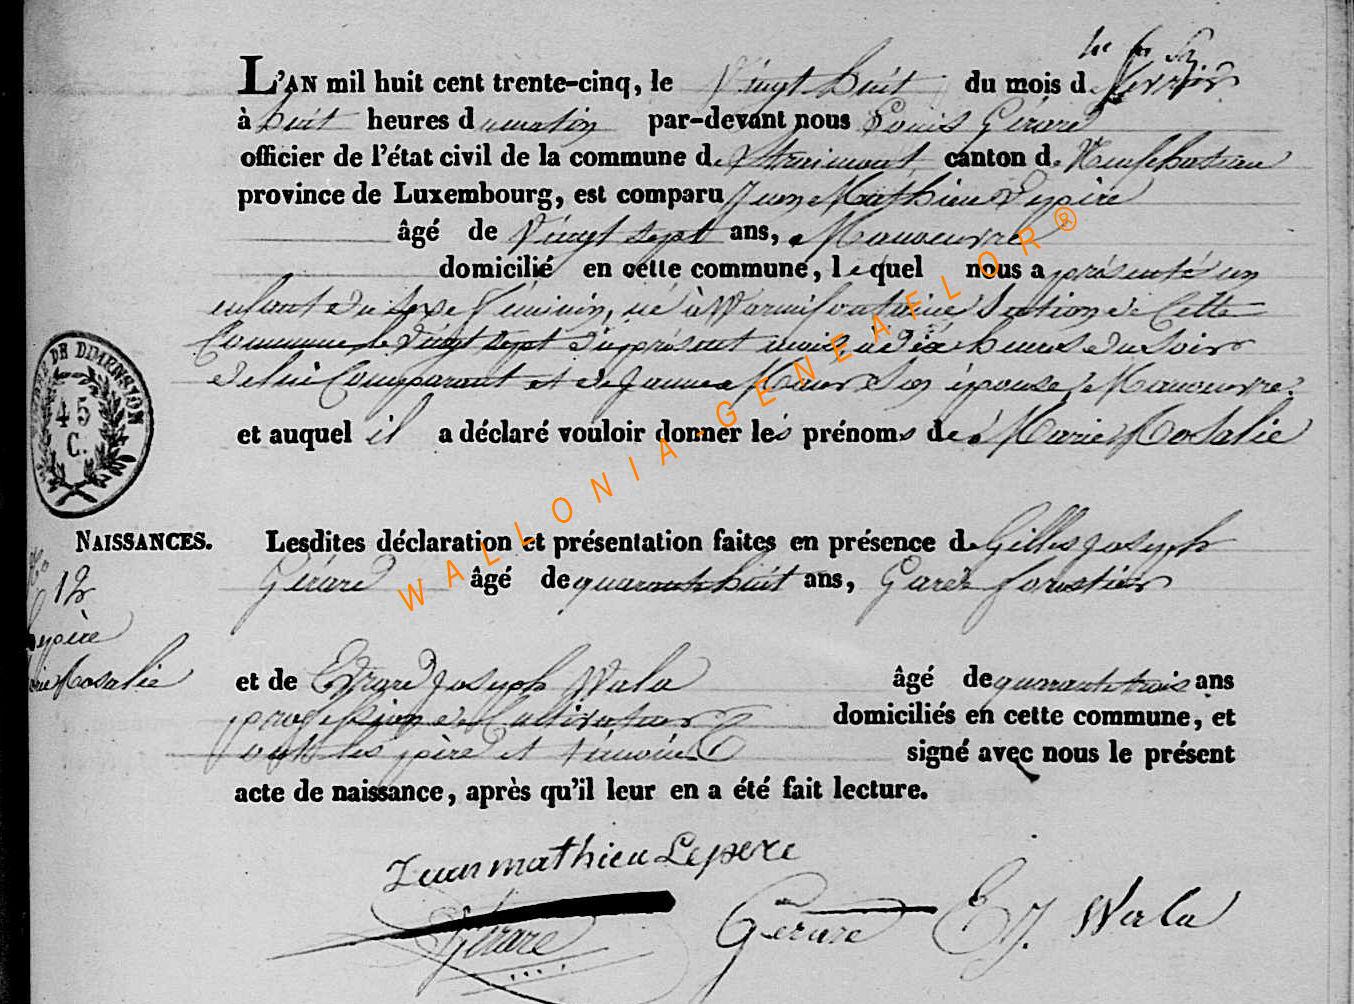 L'AN mil huit cent trente-cinq, le Vingt huit du mois de fevrier
à huit heures du matin par-devant nous Louis Gérard
officier de l'état civil de la commune de Straimont, canton de Neufchateau
province de Luxembourg, est comparu Jean Mathieu Lepère
âgé de Vingt sept ans, Manoeuvre
domicilié en cette commune, lequel nous a présenté un
enfant du sexe féminin, né à Warmifontaine Section de Cette
Commune le Vingt sept du présent mois à dix heures du Soir
de lui Comparant et de Jeanne Son épouse, Manoeuvre
et auquel il a déclaré vouloir donner les prénoms de Marie Rosalie
NAISSANCES.
Lesdites déclaration et présentation faites en présence de Gilles Joseph
Gérard âgé de quarante huit ans, Garde forestier
No
12
Lepère
Marie Rosalie
et de Evrard Joseph Wala âgé de quarante trois ans
profession de Cultivateur domiciliés en cette commune, et
ont les père et témoins signé avec nous le présent
acte de naissance, après qu'il leur en a été fait lecture.
Jean mathieu Lepere
Gérard Gerard E J. Wala
TIMBRE DE DIMENSION
45
C.
WALLONIA-GENEAFLOR®